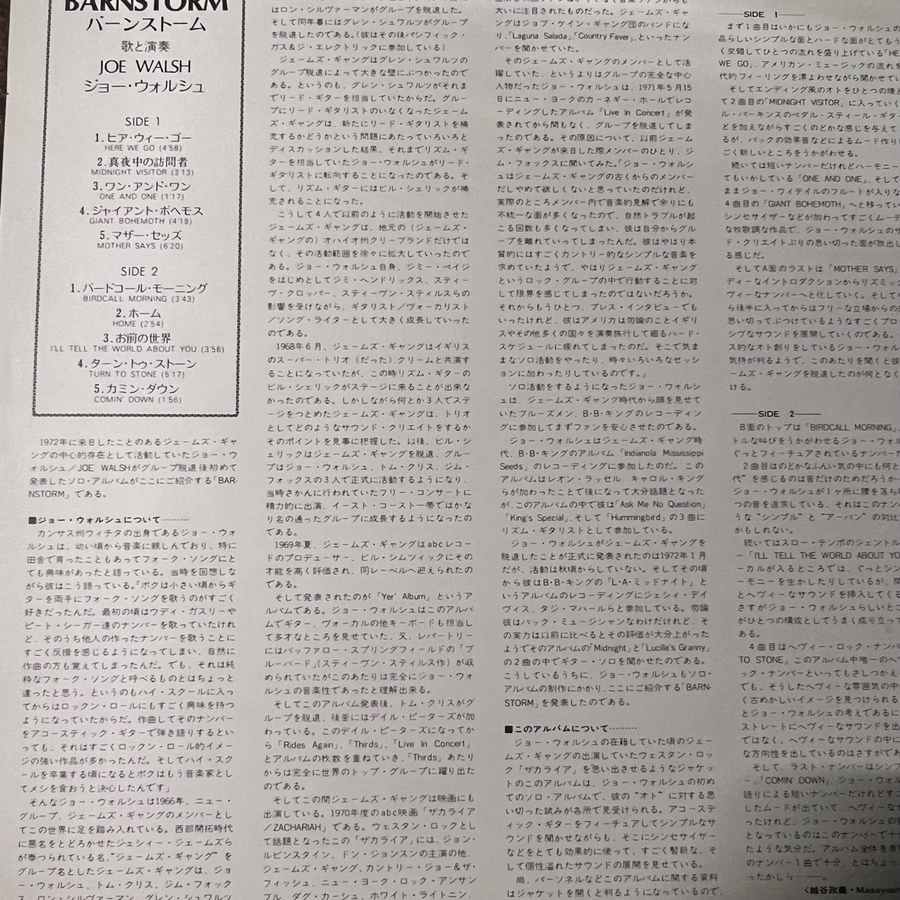 BARNSTORM
バーンストーム
歌と演奏
JOE WALSH
ジョー・ウォルシュ
SIDE 1
1. ヒア・ウィー・ゴー
HERE WE GO (4'58)
2. 真夜中の訪問者
MIDNIGHT VISITOR (3'13)
3. ワン・アンド・ワン
ONE AND ONE (1'17)
4. ジャイアント・ボヘモス
GIANT BOHEMOTH (4'19)
5. マザー・セッズ
MOTHER SAYS (6'20)
SIDE 2
1. バードコール・モーニング
BIRDCALL MORNING (3'43)
2. ホーム
HOME (2'54)
3. お前の世界
I'LL TELL THE WORLD ABOUT YOU (3'56)
4. ターン・トゥ・ストーン
TURN TO STONE (5'17)
5. カミン・ダウン
COMIN' DOWN (1'56)
1972年に来日したことのあるジェームズ・ギャ
ングの中心的存在として活動していたジョー・ウ
ォルシュ/JOE WALSHがグループ脱退後初めて
発表したソロ・アルバムがここにご紹介する「BAR-
NSTORM」である。
■ジョー・ウォルシュについて
カンサス州ウィチタの出身であるジョー・ウォ
ルシュは、幼い頃から音楽に親しんでおり、特に
田舎で育ったこともあってフォーク・ソングにと
ても興味があったと語っている。当時を回想しな
がら彼はこう語っている。「ボクは小さい頃からギ
ターを両手にフォーク・ソングを歌うのがすごく
好きだったんだ。最初の頃はウディ・ガスリーや
ピート・シーガー達のナンバーを歌っていたけれ
ど、そのうち他人の作ったナンバーを歌うことに
すごく反撥を感じるようになってしまい、自然に
作曲の方も覚えてしまったんだ。でも、それは純
粋なフォーク・ソングと呼べるものとはちょっと
違ったと思う。というのもハイ・スクールに入っ
てからはロックン・ロールにもすごく興味を持つ
ようになっていたからだ。作曲してそのナンバー
をアコースティック・ギターで弾き語りするとい
っても、それはすごくロックン・ロール的イメー
ジの強い作品が多かったんだ。そしてハイ・スク
ールを卒業する頃になるとボクはもう音楽家とし
てメシを食おうと決心したんです」
そんなジョー・ウォルシュは1966年、ニュー・
グループ、ジェームズ・ギャングのメンバーとし
てこの世界に足を踏み入れている。西部開拓時代
に悪名をとどろかせたジェシィー・ジェームズら
が奉つられている名、“ジェームズ・ギャング”を
グループ名としたジェームズ・ギャングは、ジョ
ー・ウォルシュ、トム・クリス、ジム・フォック
ス、ロン・シルヴァーマン、グレン・シュワルツ
はロン・シルヴァーマンがグループを脱退した。
そして同年暮にはグレン・シュワルツがグループ
を脱退したのである。(彼はその後パシフィック・
ガス&ジ・エレクトリックに参加している)
ジェームズ・ギャングはグレン・シュワルツの
グループ脱退によって大きな壁にぶつかったのであ
る。というのも、グレン・シュワルツがそれま
でリード・ギターを担当していたからだ。グルー
プにリード・ギタリストのいなくなったジェーム
ズ・ギャングは、新たにリード・ギタリストを補
充するかどうかという問題にあたっていろいろと
ディスカッションした結果、それまでリズム・ギ
ターを担当していたジョー・ウォルシュがリード・
ギタリストに転向することになったのである。そ
して、リズム・ギターにはビル・シェリックが補
充されることになった。
こうして4人で以前のように活動を開始させた
ジェームズ・ギャングは、地元の(ジェームズ・
ギャングの)オハイオ州クリーブランドだけでは
なく、その活動範囲を徐々に拡大していったので
ある。ジョー・ウォルシュ自身、ジミー・ペイジ
をはじめとしてジミ・ヘンドリックス、スティー
ヴ・クロッパー、スティーヴン・スティルスらの
影響を受けながら、ギタリスト/ヴォーカリスト
/ソング・ライターとして大きく成長していった
のである。
1968年6月、ジェームズ・ギャングはイギリス
のスーパー・トリオ(だった)クリームと共演す
ることになっていたが、この時リズム・ギターの
ビル・シェリックがステージに来ることが出来な
かったのである。しかしながら何とか3人でステ
ージをつとめたジェームズ・ギャングは、トリオ
としてどのようなサウンド・クリエイトをするか
そのポイントを見事に把握した。以後、ビル・シ
ェリックはジェームズ・ギャングを脱退、グルー
プはジョー・ウォルシュ、トム・クリス、ジム・
フォックスの3人で正式に活動するようになり、
当時さかんに行われていたフリー・コンサートに
積力的に出演、イースト・コースト一帯ではかな
り名の通ったグループに成長するようになったの
である。
1969年夏、ジェームズ・ギャングはabcレコー
ドのプロデューサー、ビル・シムツィックにその
才能を高く評価され、同レーベルへ迎えられたの
である。
そして発表されたのが「Yer' Album」というア
ルバムである。ジョー・ウォルシュはこのアルバ
ムでギター、ヴォーカルの他キーボードも担当し
て多才なところを見せていた、又、レパートリー
にはバッファロー・スプリングフィールドの「ブ
ルーバード」(スティーヴン・スティルス作)が収
められていたがこのあたりは完全にジョー・ウォ
ルシュの音楽性であったと理解出来る。
そしてこのアルバム発表後、トム・クリスがグ
ループを脱退、後釜にはデイル・ピータースが加わ
っている。このデイル・ピータースになってか
ら「Rides Again」、「Thirds」、「Live In Concert」
とアルバムの枚数を重ねていき、「Thirds」あたり
からは完全に世界のトップ・グループに躍り出た
のである。
そしてこの間ジェームズ・ギャングは映画にも
出演している。1970年度のabc映画「ザカライア
/ZACHARIAH」である。ウェスタン・ロックと
して話題となったこの「ザカライア」には、ジョン・
ルビンスタイン、ドン・ジョンスンの主演の他、
ジェームズ・ギャング、カントリー・ジョー&ザ・
フィッシュ、ニュー・ヨーク・ロック・アンサン
ブル、ダグ・カーショ、ホワイト・ライトニン、
大いに注目されたものだった。ジェームズ・ギャ
ングはジョブ・ケイン・ギャング団のバンドにな
り、「Laguna Salada」、「Country Fever」、といったナ
ンバーを聞かせていた。
そのジェームズ・ギャングのメンバーとして活
躍していた、というよりはグループの完全な中心
人物だったジョー・ウォルシュは、1971年5月15
日にニュー・ヨークのカーネギー・ホールでレコ
ーディングしたアルバム「Live In Concert」が発
表されてから間もなく、グループを脱退してしま
ったのである。その原因について、以前ジェーム
ズ・ギャングが来日した際メンバーのひとり、ジ
ム・フォックスに聞いてみた。「ジョー・ウォルシ
ュはジェームズ・ギャングの古くからのメンバー
だしやめて欲しくないと思っていたのだけれど、
実際のところメンバー内で音楽的見解で余りにも
不統一な面が多くなったので、自然トラブルが起
こる回数も多くなってしまい、彼は自分からグル
ープを離れていってしまったんだ。彼はやはり本
質的にはすごくカントリー的なシンプルな音楽を
求めていたようで、やはりジェームズ・ギャング
というロック・グループの中で行動することに対
して限界を感じてしまったのではないだろうか。
それからもうひとつ、プレス・インタビューでも
いったけれど、彼はアメリカは勿論のことイギリ
スやその他多くの国々を演奏旅行して廻るハード・
スケジュールに疲れてしまったのだ。そこで気ま
まなソロ活動をやったり、時々いろいろなセッシ
ョンに加わったりしているのです。」
ソロ活動をするようになったジョー・ウォルシ
ュは、ジェームズ・ギャング時代から顔を見せて
いたブルーズメン、B・B・キングのレコーディン
グに参加してまずファンを安心させたのである。
ジョー・ウォルシュはジェームズ・ギャング時
代、B・B・キングのアルバム「Indianola Mississippi
Seeds」のレコーディングに参加したのだ。この
アルバムはレオン・ラッセル、キャロル・キング
らが加わったことで後になって大分話題となった
が、このアルバムの中で彼は「Ask Me No Question」
「King's Special」、そして「Hummingbird」の3曲に
リズム・ギタリストとして参加している。
ジョー・ウォルシュがジェームズ・ギャングを
脱退したことが正式に発表されたのは1972年1月
だが、活動は秋頃からしていない。そしてその頃
から彼はB・B・キングの「L・A・ミッドナイト」と
いうアルバムのレコーディングにジェシィ・デイ
ヴィス、タジ・マハールらと参加している。勿論
彼はバック・ミュージシャンなわけだけれど、そ
の実力は以前に比べるとその評価が大分上がった
ようでそのアルバムの「Midnight」と「Lucille's Granny」
の2曲の中でギター・ソロを聞かせたのである。
こうしているうちに、ジョー・ウォルシュもソロ・
アルバムの制作にかかり、ここにご紹介する「BARN-
STORM」を発表したのである。
■このアルバムについて
ジョー・ウォルシュの在籍していた頃のジェー
ムズ・ギャングの出演していたウェスタン・ロッ
ク「ザカライア」を思い出させるようなジャケット
のこのアルバムは、ジョー・ウォルシュの初め
てのソロ・アルバムで、彼の“オト”に対する思い
切った試みが各所で見受けられる。アコーステ
ィック・ギターをフィーチュアしてシンプルなサ
ウンドを聞かせながらも、そこにシンセサイザー
などをとても効果的に使って、すごく奇抜な、そ
して個性溢れたサウンドの展開を見せている。
尚、パーソネルなどこのアルバムに関する資料
はジャケットを開くと判るようになっているので、
SIDE 1
まず1曲目はいかにもジョー・ウォルシュの
品らしいシンプルな面とハードな面がとてもう
く交錯してひとつの流れを盛り上げている「HE
WE GO」、アメリカン・ミュージックの流れを
代的フィーリングを漂よわせながら聞かせてい
そしてエンディング風のオトをひとつの導入
て2曲目の「MIDNIGHT VISITOR」に入っていく
ル・パーキンスのペダル・スティール・ギター
どを加えながらすごくのどかな感じを与えて
るが、バックの効果音などによるムード作りに
ごく新しいところをうかがわせる。
続いては短いナンバーだけれどハーモニー
てもいかしている「ONE AND ONE」、そして
ままジョー・ヴィテイルのフルートが入りな
4曲目の「GIANT BOHEMOTH」へと移ってい
シンセサイザーなどが加わってすごくムーデ
な牧歌調な作品で、ジョー・ウォルシュのサ
ド・クリエイトぶりの思い切った面が放出し
る感じだ。
そしてA面のラストは「MOTHER SAYS」
ディーなイントロダクションからリズミッ
ヴィーなナンバーへと化していく。そして
ら後半に入ってからはフリーな立場からの
思い切ってぶつけているようなすごくプロ
シブなサウンドを展開していくのである。
ス的なオト創りをしているジョー・ウォル
気持が判るようで、このあたりを聞くと彼
ームズ・ギャングを脱退したのが何となく
ける。
SIDE 2
B面のトップは「BIRDCALL MORNING」
トルな叫びをうかがわせるジョー・ウォル
ぐっとフィーチュアされているナンバーだ
2曲目はのどかなふんい気の中にも何と
代”を感じるのは音だけのためだろうか
ジョー・ウォルシュが1ヶ所に腰を落ち
つの音を追求している、それはこのナン
うな“シンプル”と“アーバン”の対比
かもしれない。
続いてはスロー・テンポのジェントル
「I'LL TELL THE WORLD ABOUT YOU
ーカルが入るところでは、ぐっとシン
モニーを生かしたりしているが、間
とヘヴィーなサウンドを挿入してくる
さすがジョー・ウォルシュらしいとこ
がひとつの構成としてうまく成り立っ
ある。
4曲目はヘヴィー・ロック・ナン
TO STONE」。このアルバム中唯一の
ック・ナンバーといってもさしつかえ
でも、そうしたヘヴィーな雰囲気の中
く古めかしいイメージを見つけられる
とジョー・ウォルシュの考えであるに
ストレートにヘヴィーなサウンドを出
ではなく、ヘヴィーなサウンドの中に
な方向性を出しているのはさすがであ
そして、ラスト・ナンバーはシン
「COMIN' DOWN」、ジョー・ウォル
語りによる短いナンバーだけれどす
したムードが出ていて、ヘヴィーな
ったけれど、ジョー・ウォルシュの
となっているのはこのナンバーで十
たような気分だ。アルバム全体を
のナンバー1曲で十分、とはちょっ
ったかしら
(越谷政義・Masayoshi